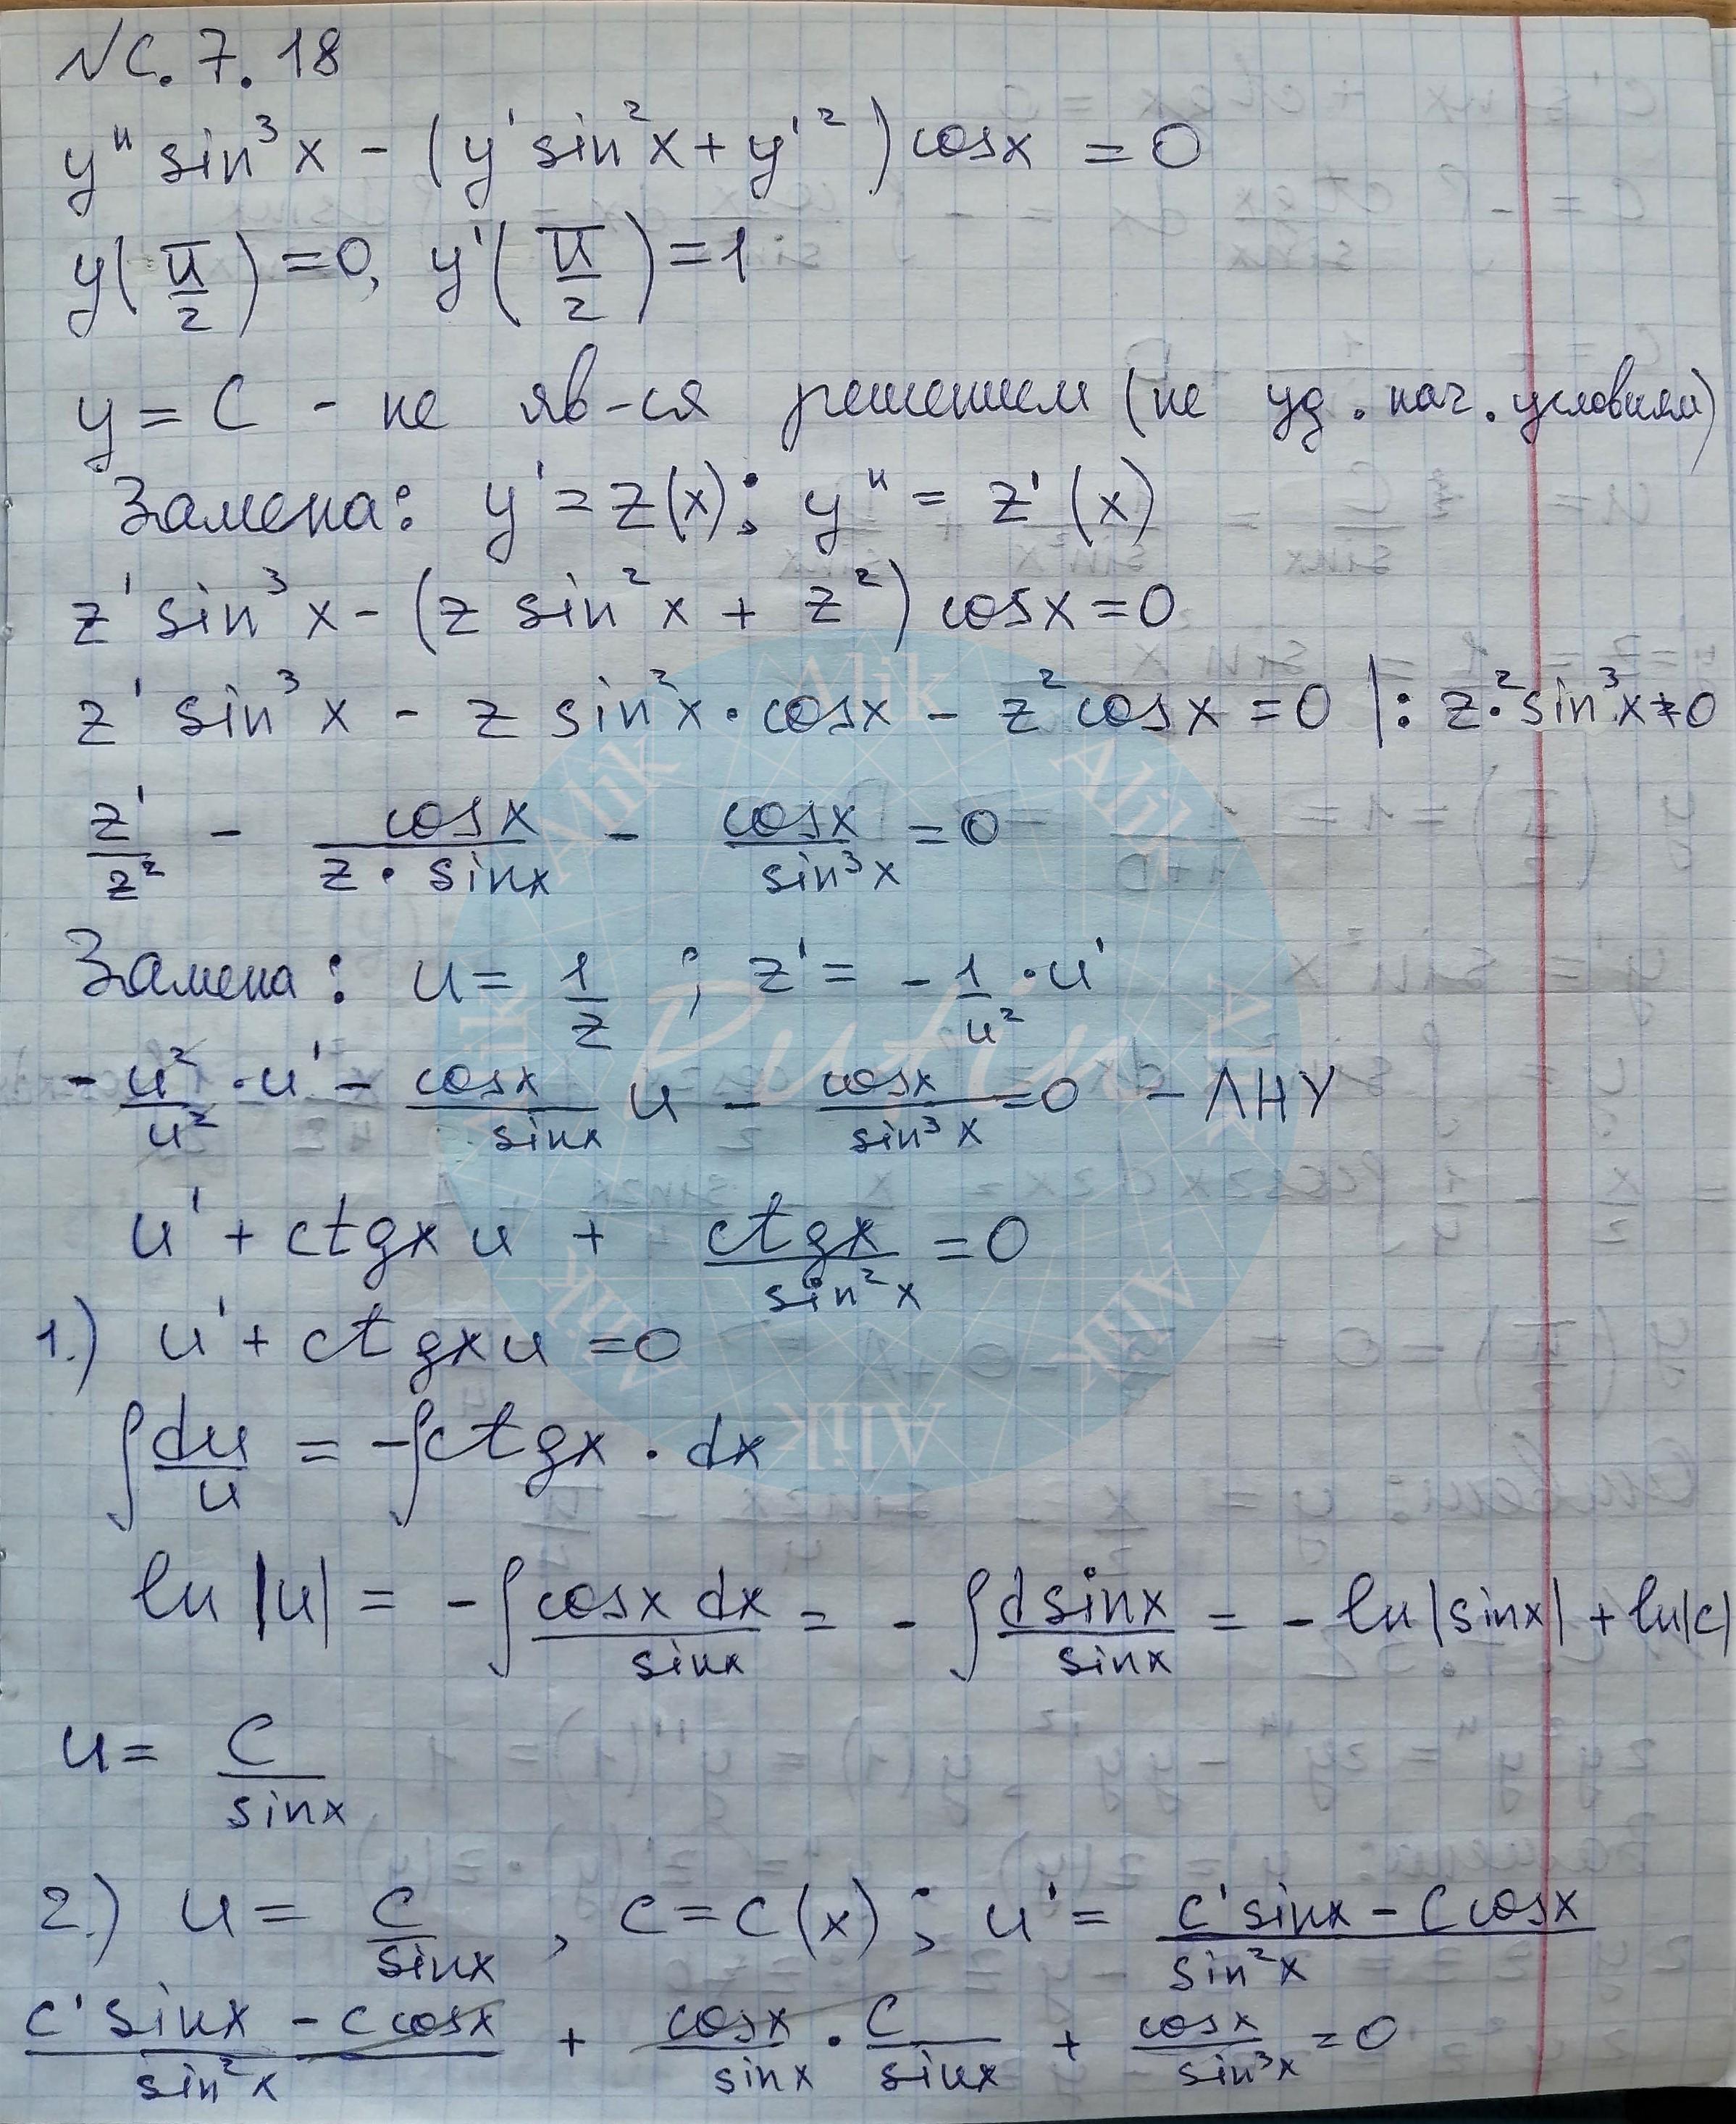 № С. 7. 18
y'' sin³x - (y' sin²x + y'²) cosx = 0
y(π/2) = 0, y'(π/2) = 1
y = C - не яв-ся решением (не уд. нач. условиям)
Замена: y' = z(x); y'' = z'(x)
z' sin³x - (z sin²x + z²) cosx = 0
z' sin³x - z sin²x · cosx - z² cosx = 0 |: z² · sin³x ≠ 0
z'/z² - cosx/(z · sinx) - cosx/sin³x = 0
Замена: u = 1/z ; z' = - 1/u² · u'
- u²/u² · u' - cosx/sinx u - cosx/sin³x = 0 - ЛНУ
u' + ctgx u + ctgx/sin²x = 0
1.) u' + ctgx u = 0
∫ du/u = -∫ ctgx · dx
ln |u| = - ∫ cosx dx/sinx = - ∫ dsinx/sinx = - ln |sinx| + ln|c|
u = C/sinx
2.) u = C/sinx , c = c(x) ; u' = (c' sinx - c cosx)/sin²x
(c' sinx - c cosx)/sin²x + cosx/sinx · C/sinx + cosx/sin³x = 0
Alik Alik Alik Alik Alik Alik Alik Alik
Putin